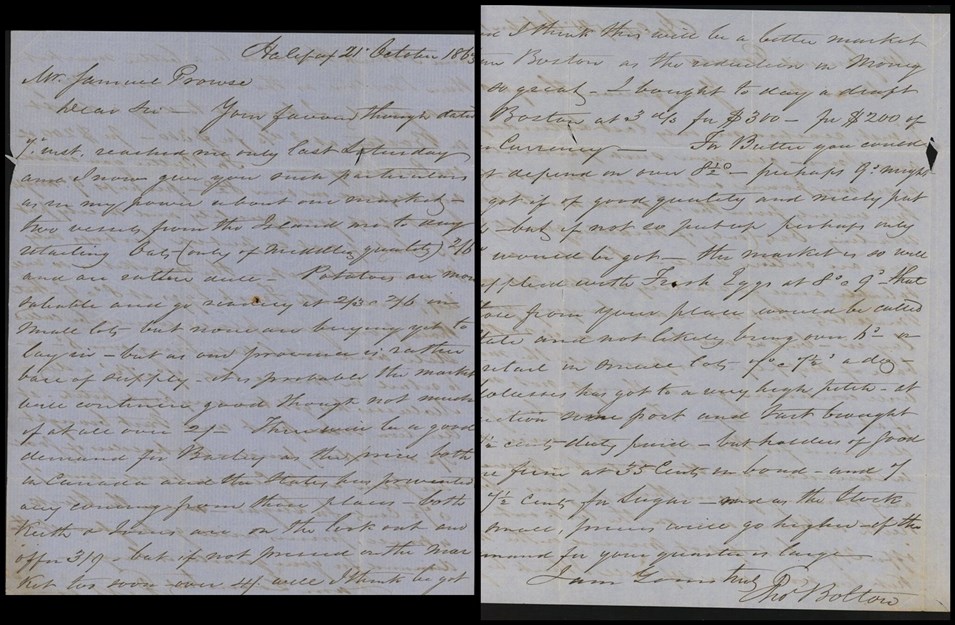 Halifax 21st October 186
Mr. Samuel Prowse
Dear Sir – Your favour though dated
7 inst. reached me only last Saturday
and I now give you such particulars
as in my power about our market –
two vessels from the Island are to day
retailing Oats (only of middling quality) 2/6
and are rather dull – Potatoes are more
salable and go readily at 2/3 a 2/6 in
small lots but none are buying yet to
lay in – but as our province is rather
bare of supply – it is probable the market
will continue good though not much
if at all over 2/ – There will be a good
demand for Barley as the price both
in Canada and the States has prevented
any coming from those places – both
Keith & Jones are on the look out and
offer 3/9 but if not pressed on the mar
ket too soon over 4/ will I think be got
I think this will be a better market
Boston as the reduction on Money
so great – I bought to day a draft
Boston at 3 d/s for $300 – for $200 of
Currency – For Butter you could
depend on over 8½d – perhaps 9d might
got if of good quality and nicely put
– but if not so put up perhaps only
would be got – the market is so well
with Fresh Eggs at 8d a 9d that
from your place would be called
and not likely bring over
retail in small lots 7d a 7½d a doz –
has got to a very high pitch – at
port and brought
cents duty paid – but holders of good
firm at 35 Cents in bond – and 7
7½ cents for Sugar – and as the Stock
small, prices will go higher if the
for your quarter is large
I am Yours truly
Thos Bolton